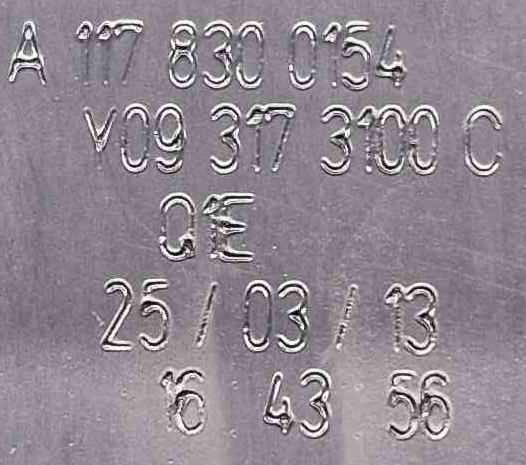 A 117 830 0154
V09 317 3100 C
Q1E
25 / 03 / 13
16 43 56